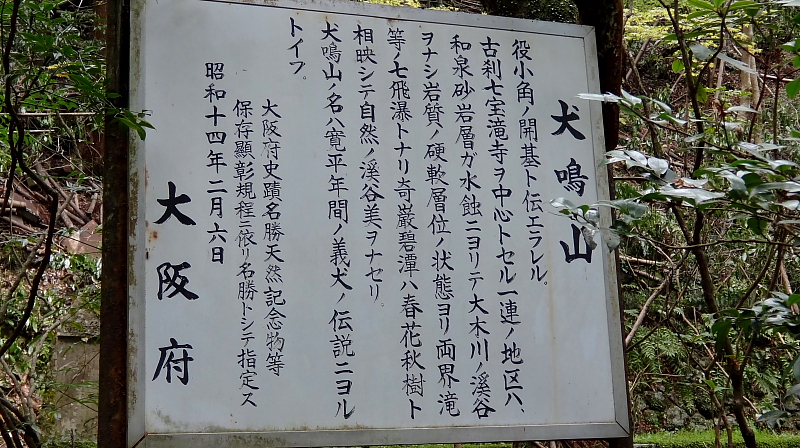 犬鳴山
役小角ノ開基ト伝エラレル。
古刹七宝滝寺ヲ中心トセル一連ノ地区ハ、
和泉砂岩層ガ水蝕ニヨリテ大木川ノ溪谷
ヲナシ岩質ノ硬軟層位ノ状態ヨリ両界滝
等ノ七飛瀑トナリ奇巌碧潭ハ春花秋樹ト
相映シテ自然ノ溪谷美ヲナセリ。
犬鳴山ノ名ハ寛平年間ノ義犬ノ伝説ニヨル
トイフ。
大阪府史蹟名勝天然記念物等
保存顕彰規程ニ依リ名勝トシテ指定ス
昭和十四年二月六日
大阪府